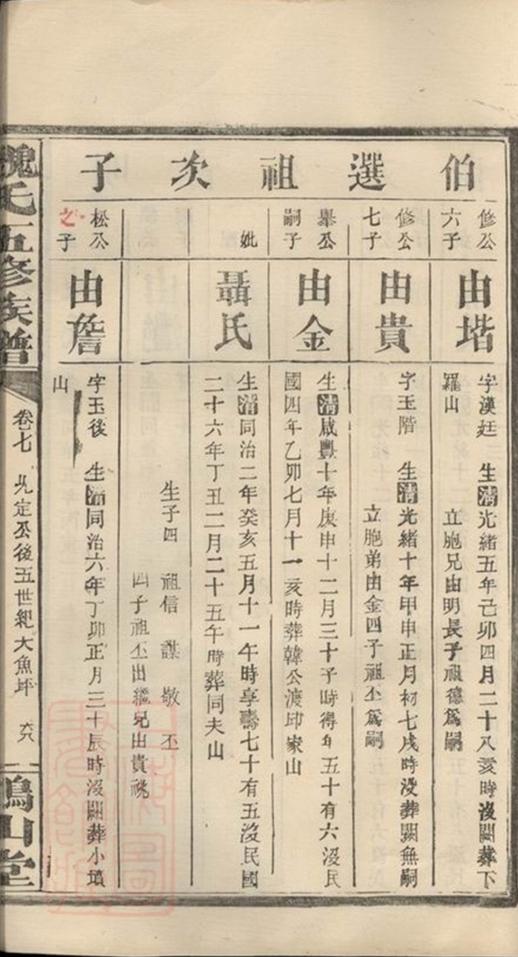 伯選祖次子
修公六子
由堦
字漢廷　生清光緒五年己卯四月二十八亥時沒闕葬下
羅山　立胞兄由明長子祖德爲嗣
修公七子
由貴
字玉階　生清光緒十年甲申正月初七戌時沒葬闕無嗣
立胞弟由金四子祖丕爲嗣
舉公嗣子
由金
生清咸豐十年庚申十二月三十子時得年五十有六沒民
國四年乙卯七月十一亥時葬韓公渡邱家山
妣
聶氏
生清同治二年癸亥五月十一午時享壽七十有五沒民國
二十六年丁丑二月二十五午時葬同夫山
生子四　祖信　謀　敬　丕
四子祖丕出繼兄由貴祧
松公之子
由詹
字玉後　生清同治六年丁卯正月三十辰時沒闕葬小墳
山
魏氏五修族譜
卷七　允定公後五世紀大魚坪　六八
鶴山堂